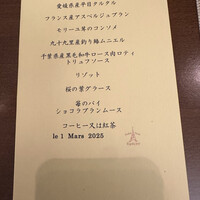 愛媛県産平目タルタル
フランス産アスペルジュブラン
セリーユ茸のコンソメ
九十九里産釣り鰆ムニエル
千葉県産黒毛和牛ロース肉ロティ
トリュフソース
リゾット
桜の葉グラース
苺のパイ
ショコラブランムース
コーヒー又は紅茶
le 1 Mars 2025